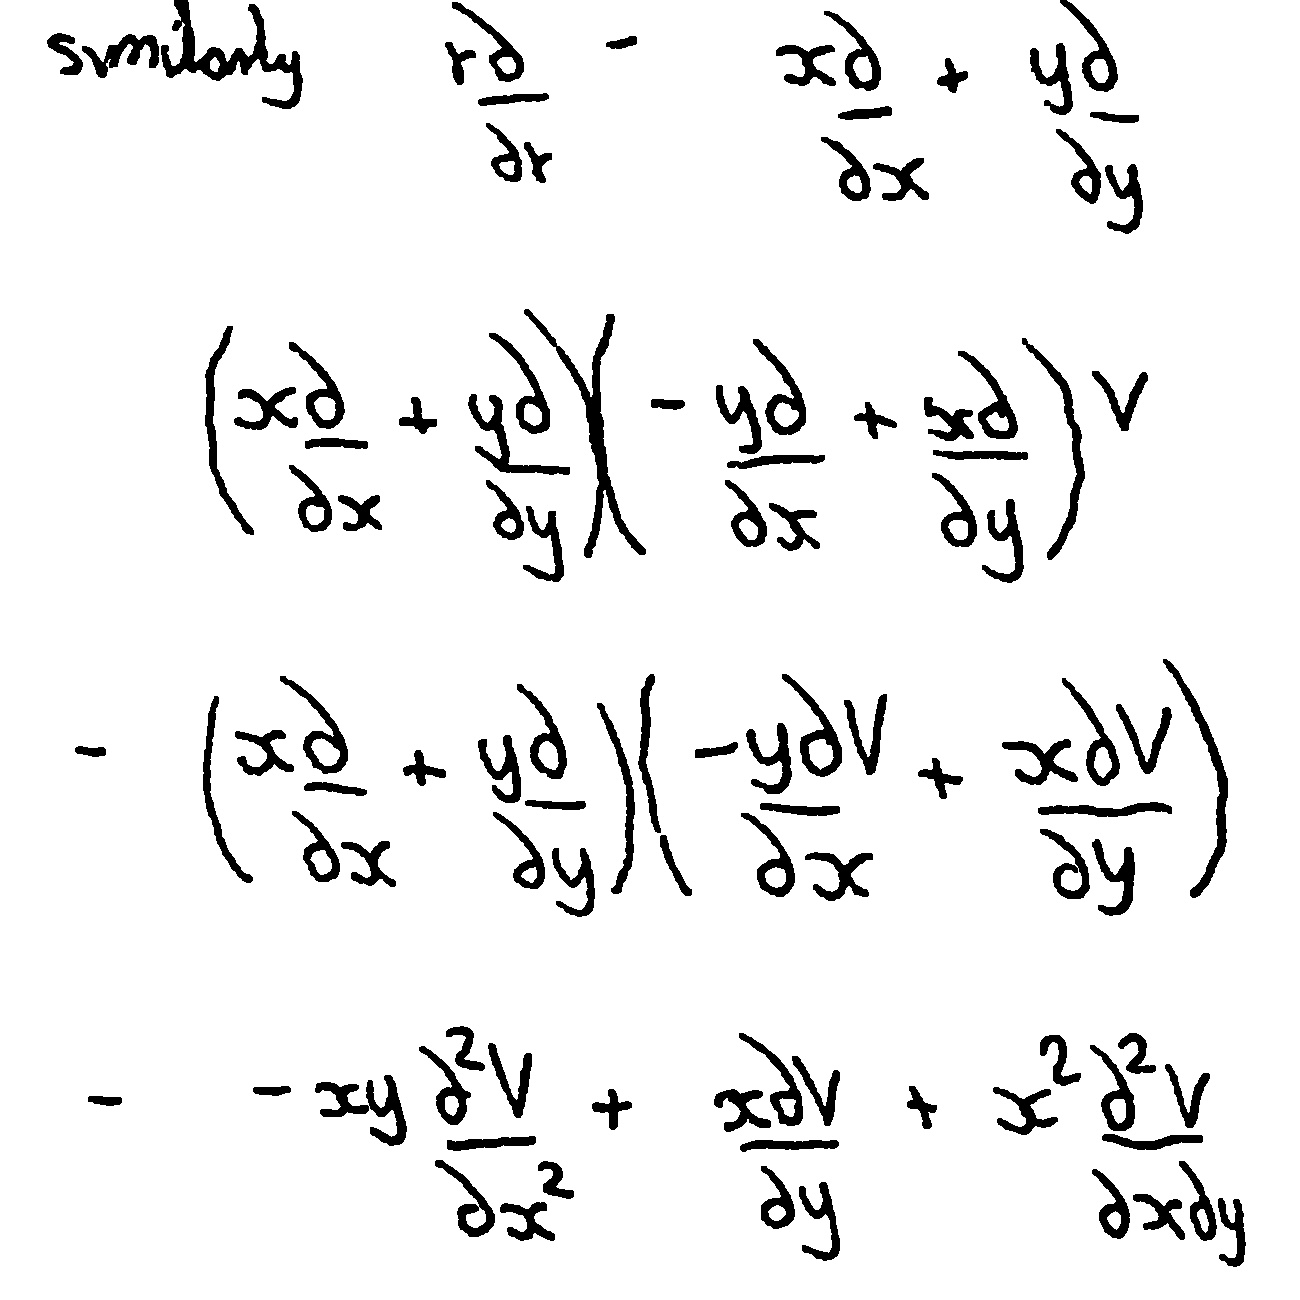 similarly r∂/∂r - x∂/∂x + y∂/∂y
(x∂/∂x + y∂/∂y)(-y∂/∂x + x∂/∂y)V
- (x∂/∂x + y∂/∂y)(-y∂V/∂x + x∂V/∂y)
- -xy ∂²V/∂x² + x∂V/∂y + x² ∂²V/∂x∂y